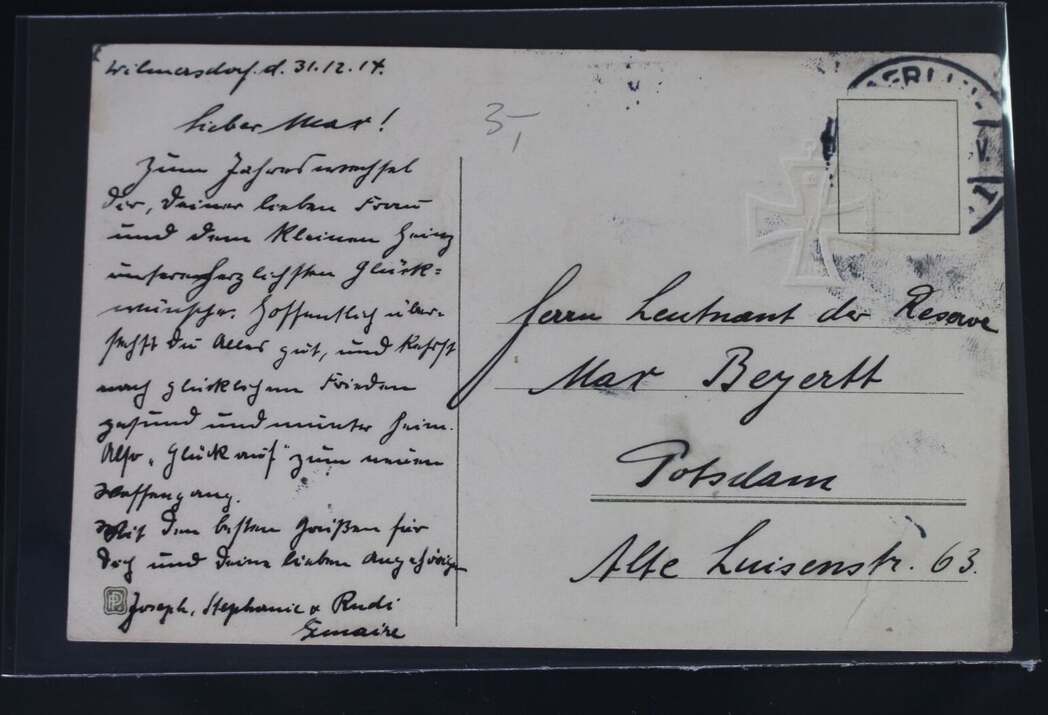 Wilmersdorf. d. 31.12.14.
Lieber Max!
Zum Jahreswechsel
Dir, Deiner lieben Frau
und dem kleinen Heinz
unsere herzlichsten Glück=
wünsche. Hoffentlich über-
stehst Du Alles gut, und kehrst
nach glücklichem Frieden
gesund und munter heim.
Also "Glück auf" zum neuen
Waffengang.
Mit den besten Grüßen für
Dich und Deine lieben Angehörigen
Joseph, Stephanie & Rudi
3,-
BERLIN
Herrn Leutnant der Reserve
Max Beyertt
Potsdam
Alte Luisenstr. 63.